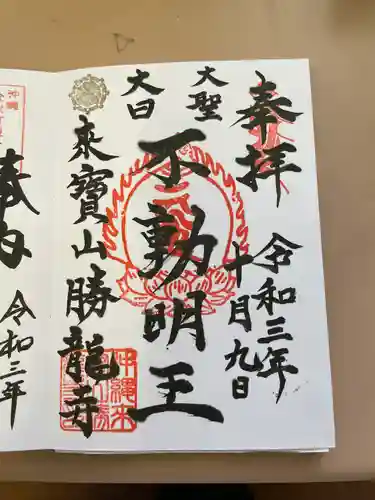 奉拝
令和三年
十月九日
大聖
不動明王
大日
来寳山勝龍寺
沖縄
令和三年